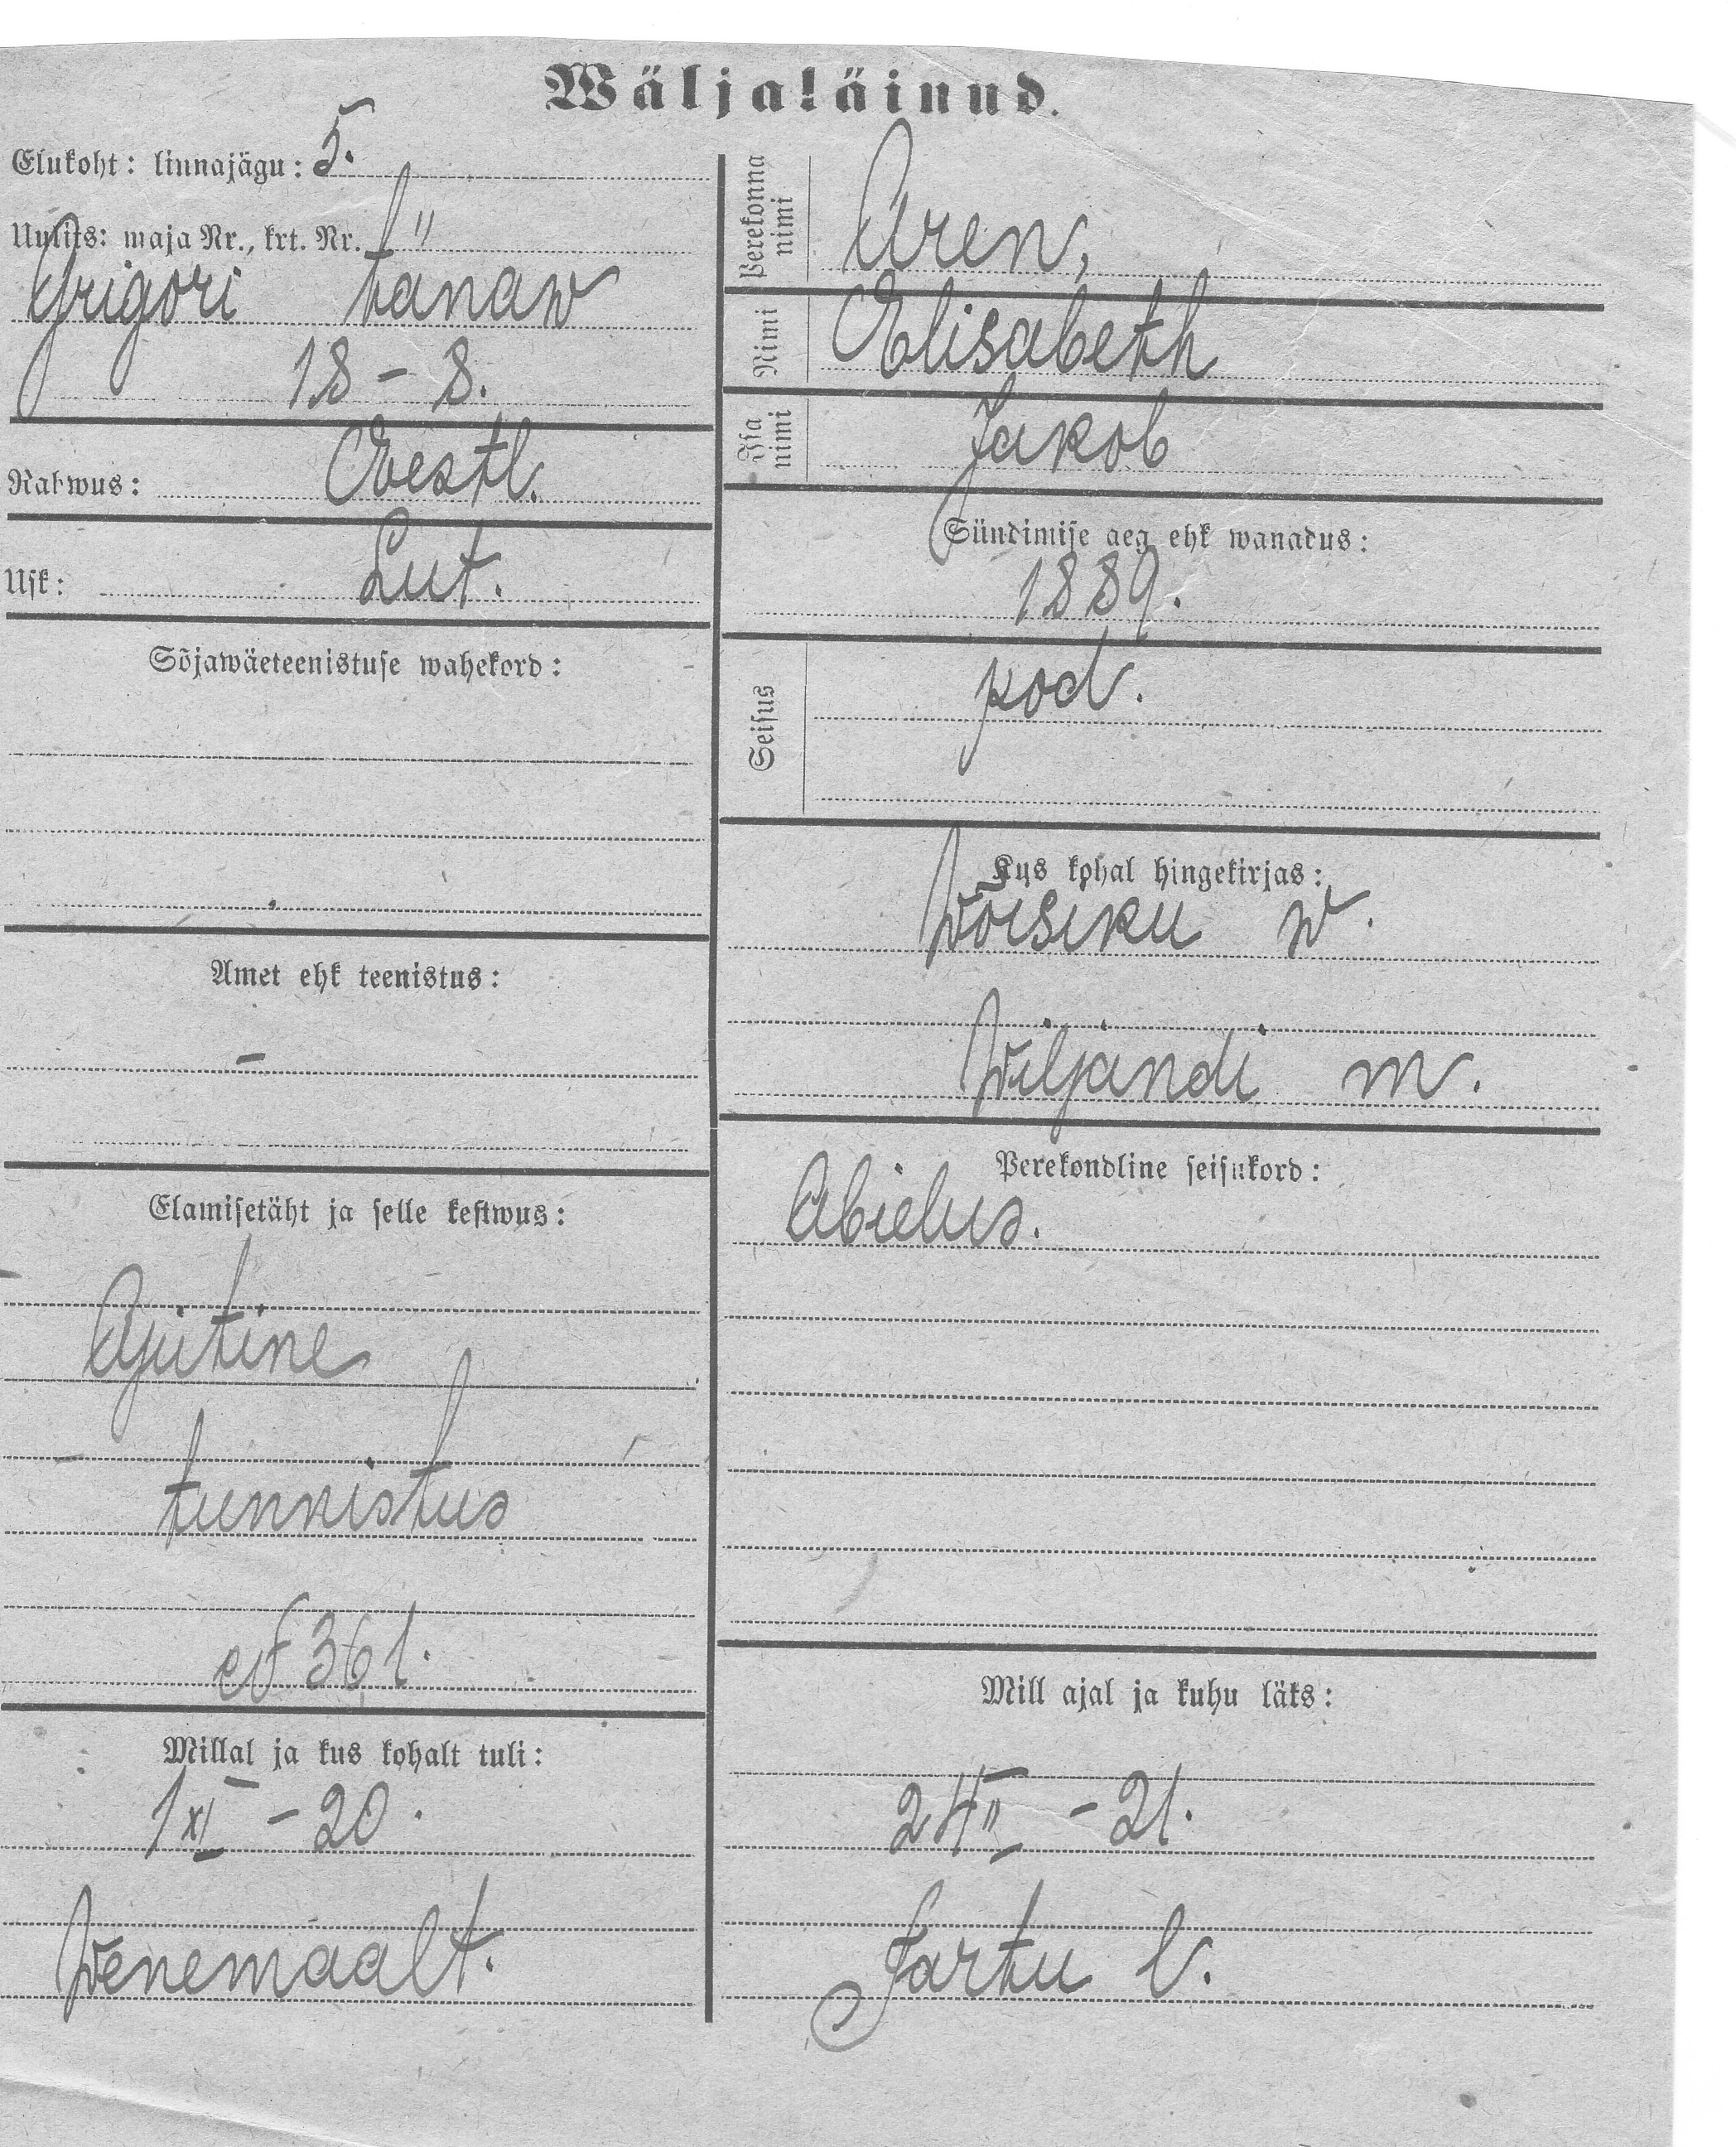 Wäljaläinud.
Elukoht: linnajägu: 5.
Uulits: maja Nr., krt. Nr. "
Grigori tänaw
18 - 8.
Rahwus: Eestl.
Usk: Lut.
Sõjawäeteenistuse wahekord:
Amet ehk teenistus:
-
Elamisetäht ja selle kestwus:
Ajutine
tunnistus
№ 361.
Millal ja kus kohalt tuli:
1 XI - 20.
Wenemaalt.
Perekonna nimi
Aren,
Nimi
Elisabeth
Isa nimi
Jakob
Sündimise aeg ehk wanadus:
1889.
Seisus
kod.
Kus kohal hingekirjas:
Wõisiku w.
Wiljandi m.
Perekondline seisukord:
Abielus.
Mill ajal ja kuhu läks:
24 II - 21.
Tartu l.